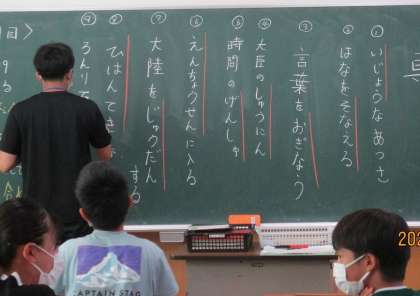 具
① いじょうなあつさ
② はなをそなえる
③ 言葉をおぎなう
④ 大臣のしゅうにん
⑤ 時間のげんしゅ
⑥ えんちょうせんに入る
⑦ 大陸をじゅうだん
する
⑧ ひはんてきな
⑨ ろんり
目〉
CAPTAIN STAG
202